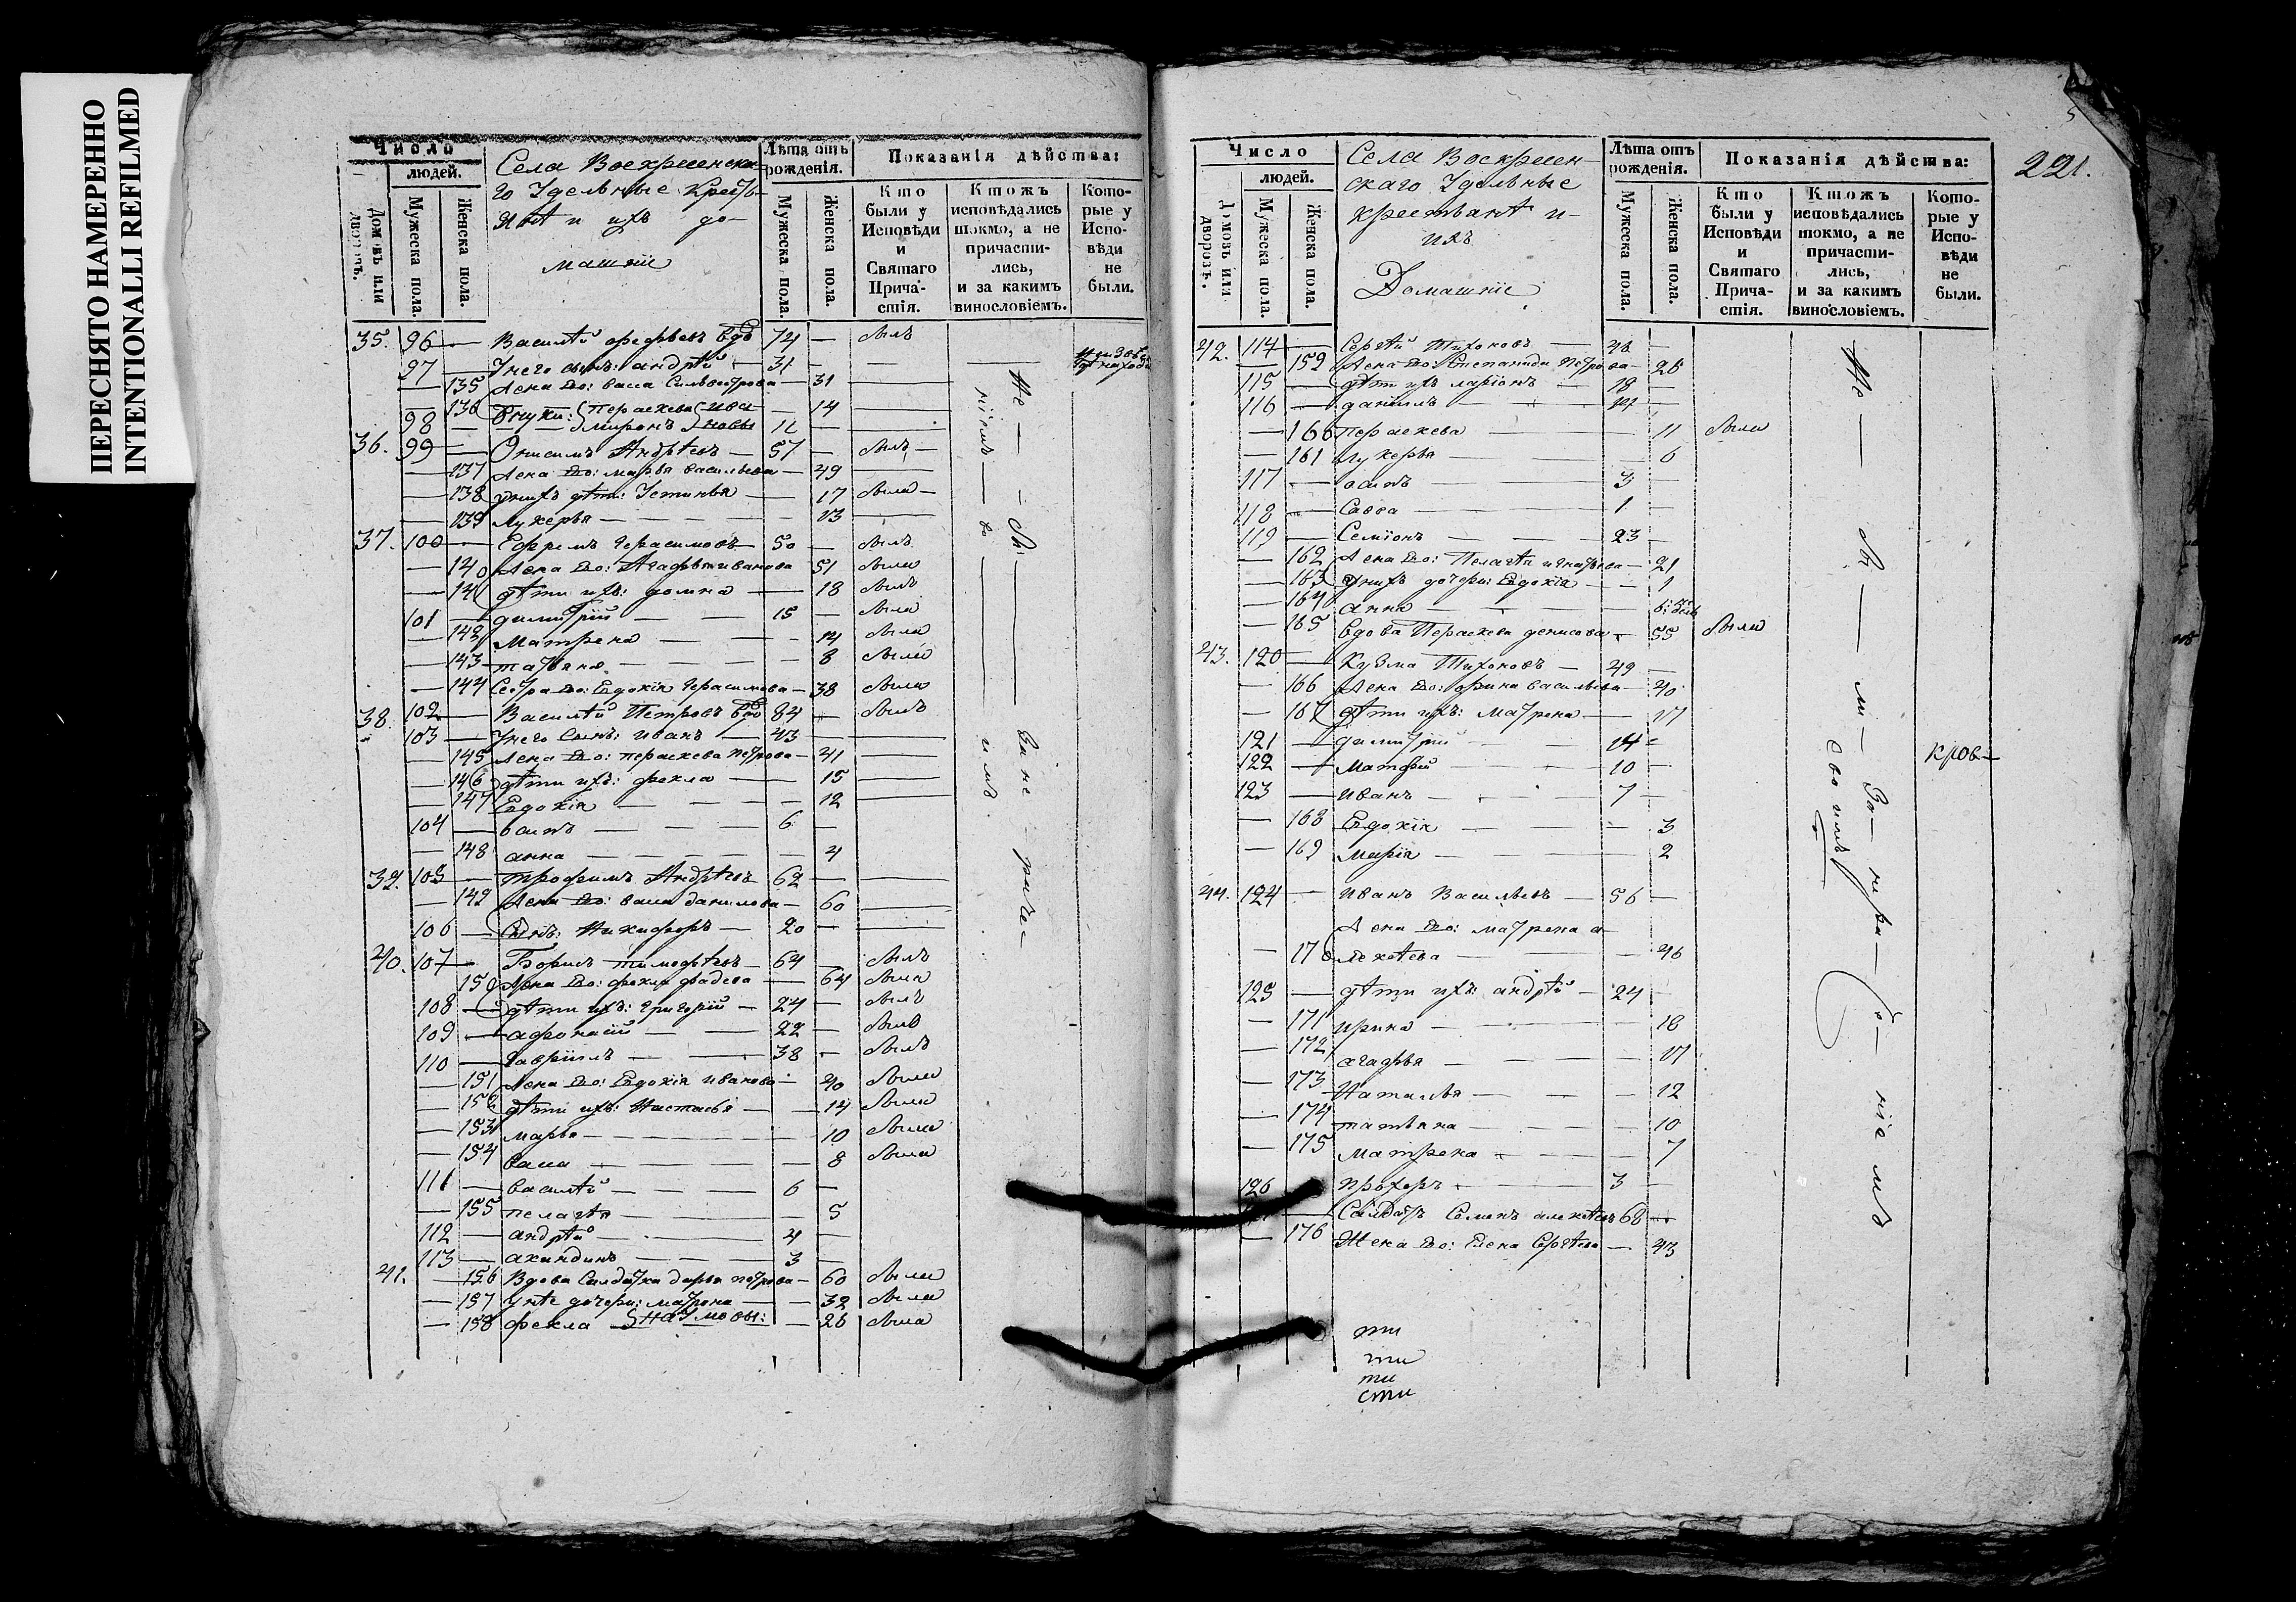 ПЕРЕСНЯТО НАМЕРЕННО
INTENTIONALLI REFILMED
Число
людей.
Домовъ или дворовъ.
Мужеска пола.
Женска пола.
Села Воскресенска-
го Удельные Кресть-
яне и ихъ до-
машніе
Лѣта отъ рожденія.
Мужеска пола.
Женска пола.
Показанія дѣйства:
Кто были у Исповѣди и Святаго Прича-стія.
Ктожъ исповѣдались токмо, а не причасти-лись, и за какимъ винословіемъ.
Кото-рые у Испо-вѣди не были.
35. 96 — Василій Ѳедоровъ вдо 74 — былъ
97 — У него сынъ: андрѣй — 31 —
— 135 Жена его: васа Сильвестрова — 31
— 136 Внуки: Параскева Ива- — 14
98 — миронъ новы 11 —
36. 99 — Онисимъ Андреевъ — 57 — былъ —
— 137 Жена его: марья васильева — 49
— 138 у нихъ дѣти: Устинья — 17 была —
— 139 Лукерья — 13
37. 100 — Ефремъ Герасимовъ — 50 — былъ
— 140 Жена его: Агафья иванова 51 была
— 141 дѣти ихъ: домна — 18 былъ
101 — димитрій — 15 — была
— 142 Матрена — 14 была
— 143 татьяна — 8 была
— 144 Сестра его: Евдокія Герасимова — 38 была
38. 102 — Василій Петровъ вдо 84 — былъ
103 — У него Сынъ: иванъ — 43 —
— 145 Жена его: параскева петрова — 41
— 146 дѣти ихъ: фекла — 15
— 147 Евдокія — 12
104 — 6 —
— 148 анна — 4
39. 105 — трофимъ Андреевъ 62 —
— 149 Жена его: васа данилова — 60
106 — Сынъ: Никифоръ — 20 —
40. 107 — Борисъ тимофеевъ — 64 — былъ
150 Жена его: фекла фадеева — 64 была
108 — дѣти ихъ: григорій — 24 — былъ
109 — афонасій — 22 — былъ
110 — гавріилъ — 38 — былъ
— 151 Жена его: Евдокія иванова — 40 была
— 152 дѣти ихъ: Настасья — 14 была
— 153 марья — 10 была
— 154 васа — 8 была
111 — василій — 6 —
— 155 пелагѣя — 5
112 — андрѣй — 4 —
113 — акиндинъ — 3 —
41. — 156 Вдова Салдатка дарья петрова — 60 была
— 157 У нее дочери: матрона — 32 была
— 158 фекла Наумовы: — 26 была
221.
Число
людей.
Домовъ или дворовъ.
Мужеска пола.
Женска пола.
Села Воскресен-
скаго Удельные
крестьянѣ и-
ихъ
Домашніе
Лѣта отъ рожденія.
Мужеска пола.
Женска пола.
Показанія дѣйства:
Кто были у Исповѣди и Святаго Прича-стія.
Ктожъ исповѣдались токмо, а не причасти-лись, и за какимъ винословіемъ.
Кото-рые у Испо-вѣди не были.
42. 114 — Сергѣй Тихоновъ —
— 159 Жена его: Степанида Петрова —
115 — дѣти ихъ ларіонъ —
116 — данилъ —
— 160 параскева — 11 была
— 161 Лукерья — 6
117 — 3 —
118 — Савва — 1 —
119 — Семіонъ — 23 —
— 162 Жена его: Пелагѣя игнатьева — 21
— 163 у нихъ дочери: Евдокія — 1
— 164 анна —
— 165 вдова Параскева денисова — 55 была
43. 120 — Кузма Тихоновъ — 49 —
— 166 Жена его: ирина васильева — 40
— 167 дѣти ихъ: Матрена — 17
121 — димитрій — 14 —
122 — Матфей — 10 —
123 — иванъ — 7 —
— 168 Евдокія — 3
— 169 Марія — 2
кров—
44. 124 — иванъ Васильевъ — 56 —
Жена его: матрена а-
— 170 лексѣева — 46
125 — дѣти ихъ: андрѣй — 24 —
— 171 ирина — 18
— 172 агафья — 17
— 173 Наталья — 12
— 174 татьяна — 10
— 175 матрона — 7
126 — прохоръ — 3 —
— Салдатъ Семенъ алексѣевъ 68 —
— 176 Жена его: Елена Сергѣева — 43
ти
ти
ти
сти